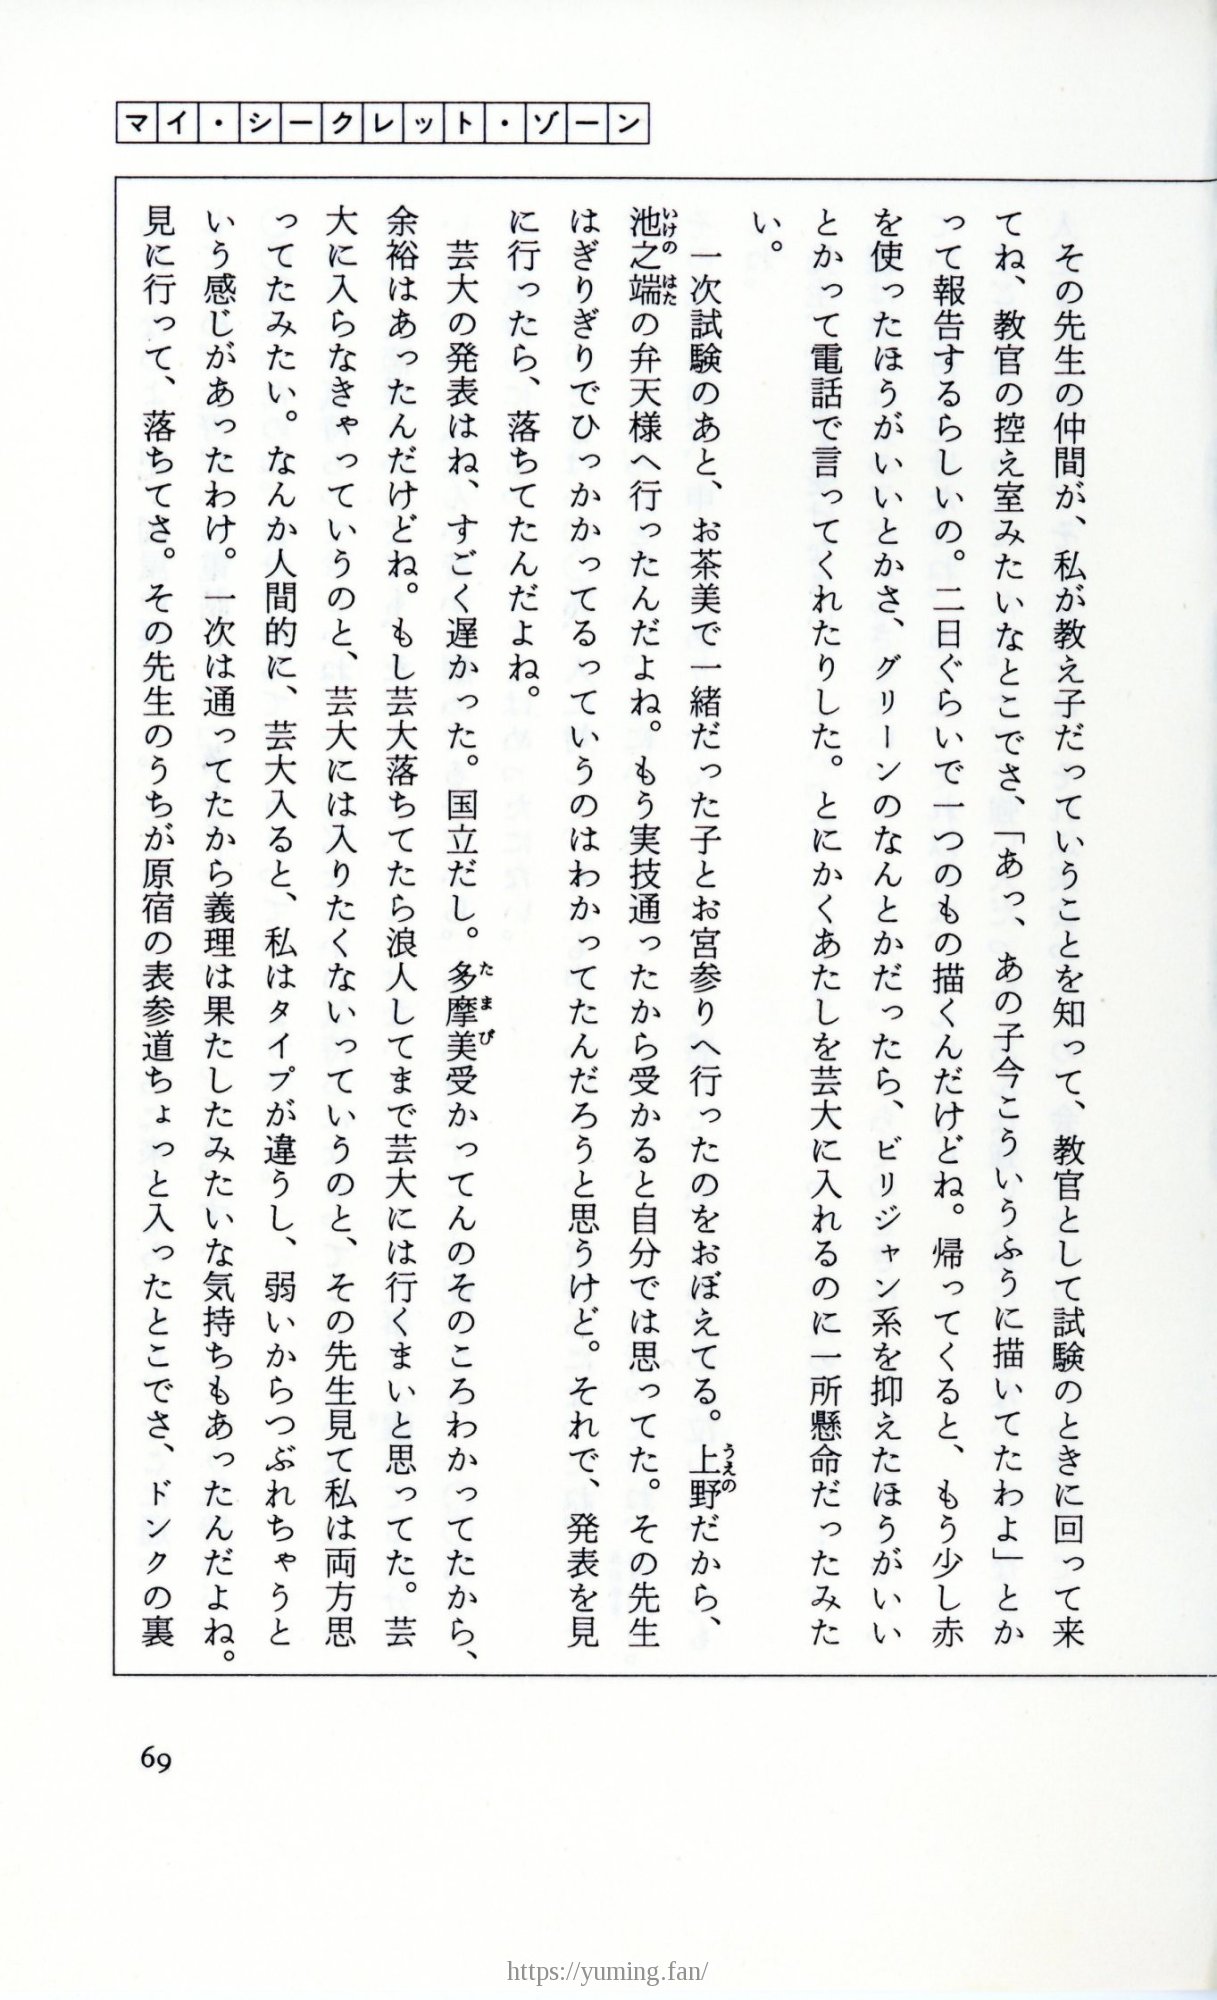 マイ・シークレット・ゾーン
　その先生の仲間が、私が教え子だっていうことを知って、教官として試験のときに回って来
てね、教官の控え室みたいなとこでさ、「あっ、あの子今こういうふうに描いてたわよ」とか
って報告するらしいの。二日ぐらいで一つのもの描くんだけどね。帰ってくると、もう少し赤
を使ったほうがいいとかさ、グリーンのなんとかだったら、ビリジャン系を抑えたほうがいい
とかって電話で言ってくれたりした。とにかくあたしを芸大に入れるのに一所懸命だったみた
い。
　一次試験のあと、お茶美で一緒だった子とお宮参りへ行ったのをおぼえてる。上野だから、
池之端の弁天様へ行ったんだよね。もう実技通ったから受かると自分では思ってた。その先生
はぎりぎりでひっかかってるっていうのはわかってたんだろうと思うけど。それで、発表を見
に行ったら、落ちてたんだよね。
　芸大の発表はね、すごく遅かった。国立だし。多摩美受かってんのそのころわかってたから、
余裕はあったんだけどね。もし芸大落ちてたら浪人してまで芸大には行くまいと思ってた。芸
大に入らなきゃっていうのと、芸大には入りたくないっていうのと、その先生見て私は両方思
ってたみたい。なんか人間的に、芸大入ると、私はタイプが違うし、弱いからつぶれちゃうと
いう感じがあったわけ。一次は通ってたから義理は果たしたみたいな気持ちもあったんだよね。
見に行って、落ちてさ。その先生のうちが原宿の表参道ちょっと入ったとこでさ、ドンクの裏
69
https://yuming.fan/